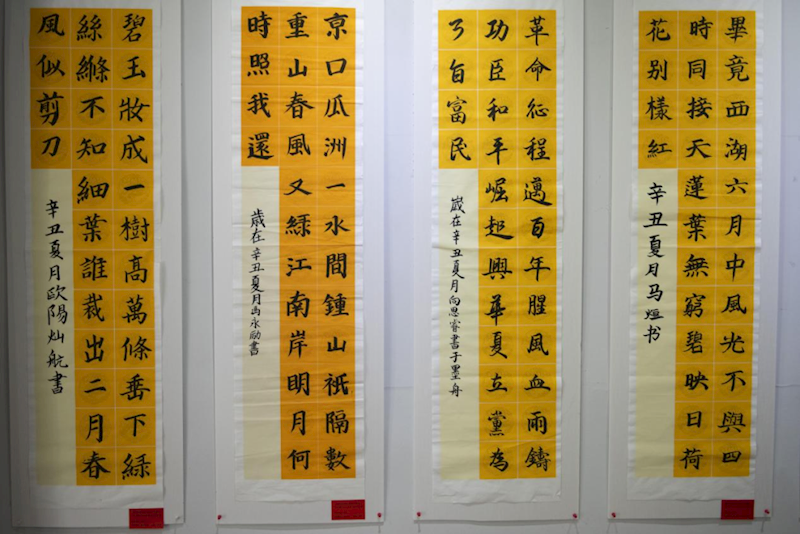 畢竟西湖六月中風光不與四
時同接天蓮葉無窮碧映日荷
花别樣紅
辛丑夏月马烜书
革命征程邁百年腥風血雨鑄
功臣和平崛起興華夏立黨為
了富民
歲在辛丑夏月向思睿書于墨舟
京口瓜洲一水間鍾山衹隔數
重山春風又綠江南岸明月何
時照我還
歲在辛丑夏月永勵書
碧玉妝成一樹高萬條垂下綠
絲縧不知細葉誰裁出二月春
風似剪刀
辛丑夏月欧陽灿航書